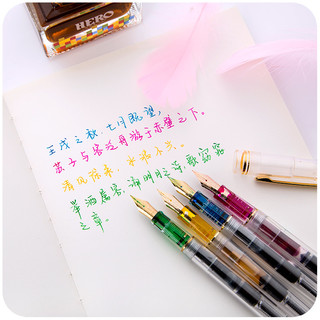 HERO
壬戌之秋,七月既望,
苏子与客泛舟游于赤壁之下。
清风徐来,水波不兴。
举酒属客,诵明月之诗,歌窈窕
之章。